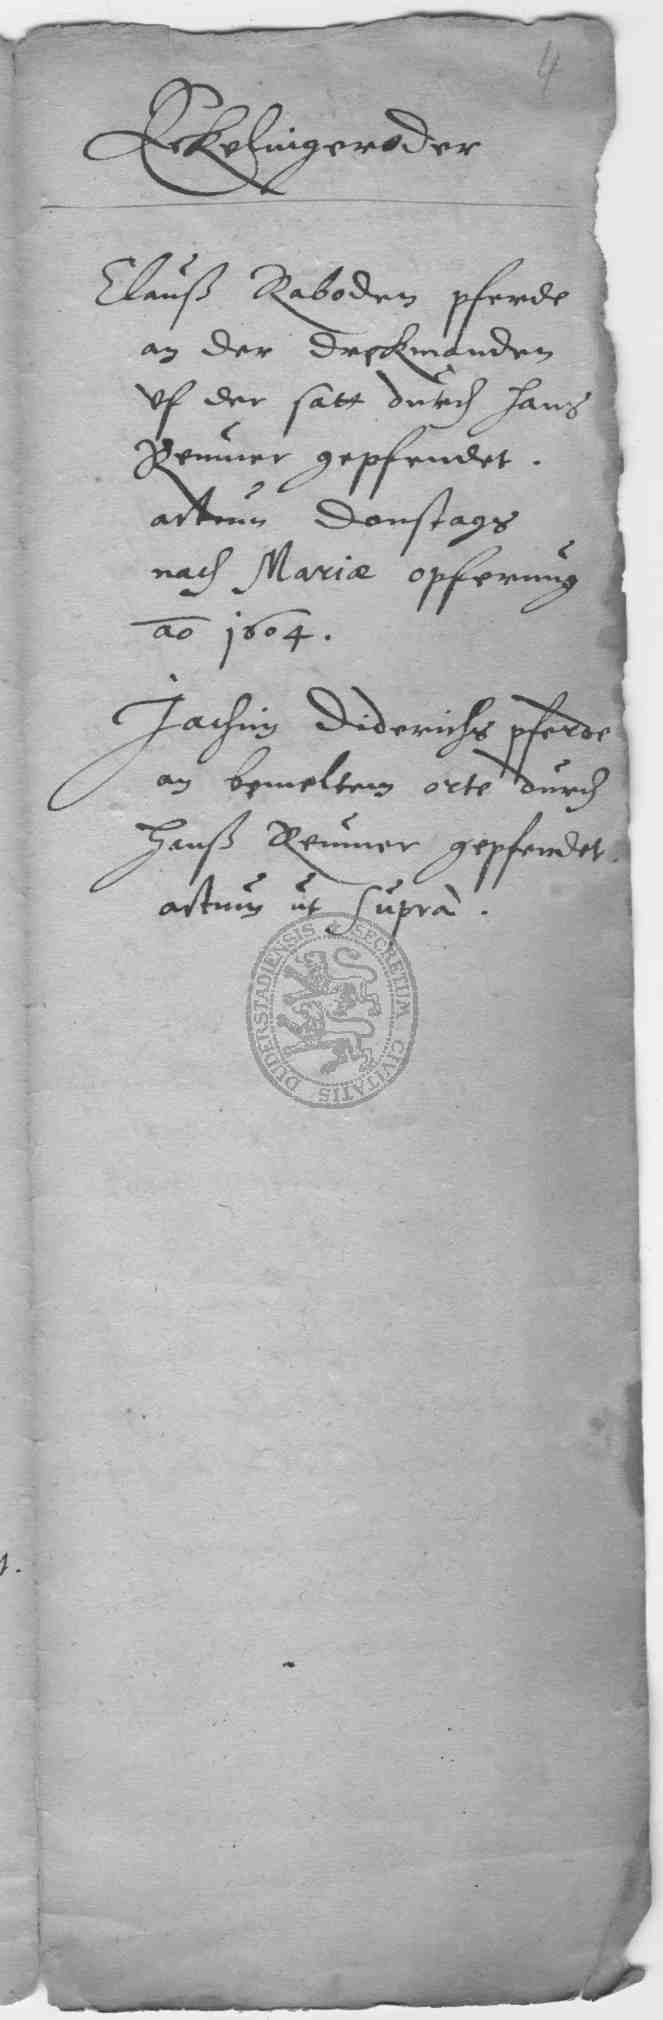 4
Eckelingeroder
Clauß Raboden pferde
an der dreckmanden
vf der satt durch Hans
Reumer gepfendet.
actum Donstags
nach Mariæ opferung
ao 1604.
Jachim Diderichs pferde
an bemeltem orte durch
Hanß Reumer gepfendet.
actum ut suprà.
SECRETUM CIVITATIS DUDERSTADIENSIS